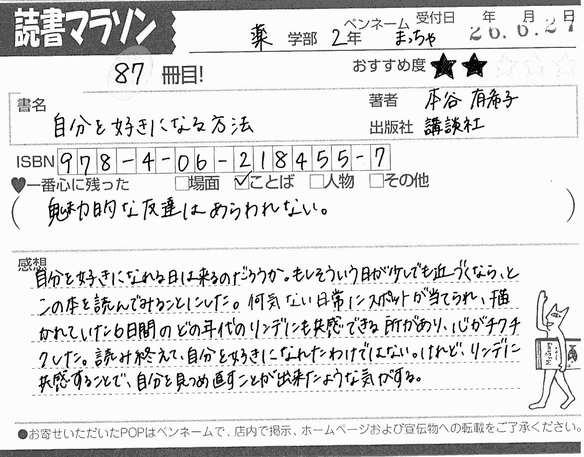 読書マラソン
薬 学部 2年 ペンネーム まっちゃ 受付日 年 月 日 26.6.27
87 冊目!
おすすめ度 ★★☆☆☆
書名 自分を好きになる方法
著者 本谷 有希子
出版社 講談社
ISBN 978-4-06-218455-7
♥一番心に残った □場面 ☑ことば □人物 □その他
( 魅力的な友達はあらわれない。 )
感想
自分を好きになれる日は来るのだろうか。もしそういう日が少しでも近づくなら、と
この本を読んでみることにした。何気ない日常にスポットが当てられ、描
かれていた6日間のどの年代のリンデにも共感できる所があり、心がチクチ
クした。読み終えて、自分を好きになれたわけではない。けれど、リンデに
共感することで、自分を見つめ直すことが出来たような気がする。
●お寄せいただいたPOPはペンネームで、店内で掲示、ホームページおよび宣伝物への掲載をご了承ください。